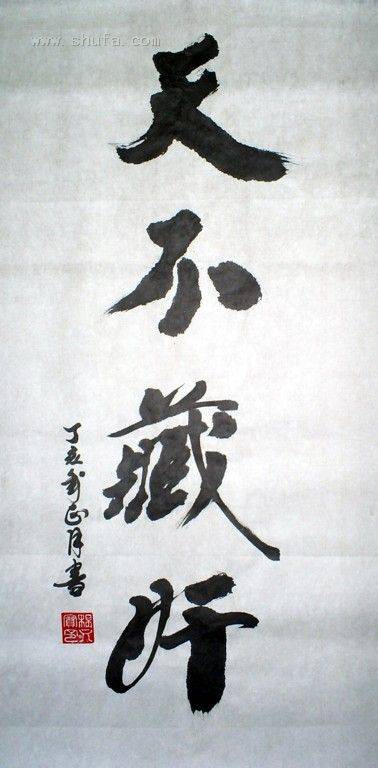 www.shufa.com
天不藏奸
丁亥年正月書